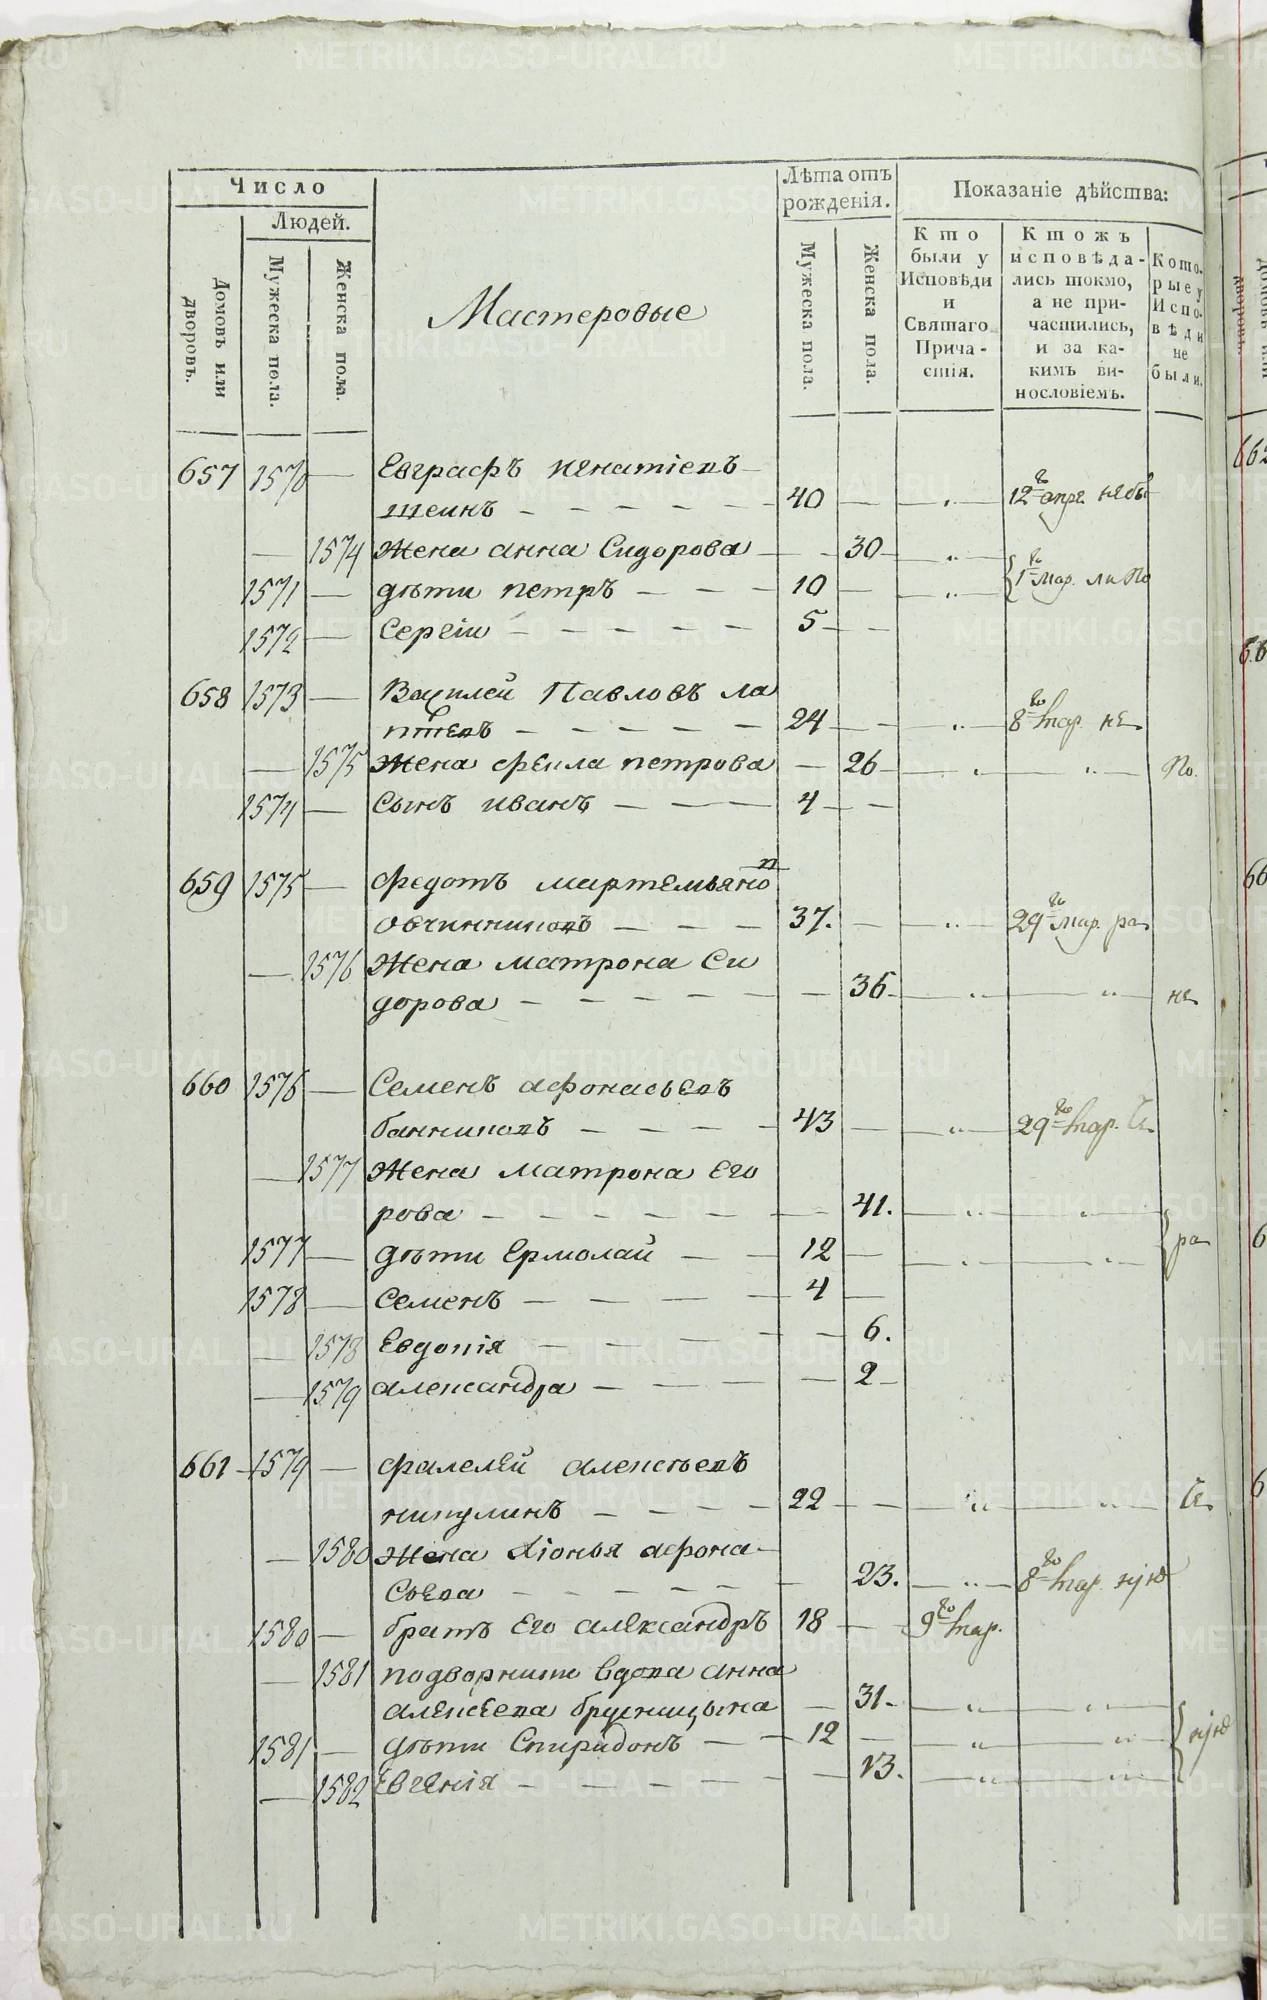 Число
Людей.
Домовъ или дворовъ.
Мужеска пола.
Женска пола.
Мастеровые
Лѣта отъ рожденія.
Мужеска пола.
Женска пола.
Показаніе дѣйства:
Кто были у Исповѣди и Святаго Прича-стія.
Ктожъ исповѣда-лись токмо, а не при-частились, и за ка-кимъ ви-нословіемъ.
Кото-рые у Испо-вѣди не были.
657 1570 — Евграфъ игнатіевъ
— — — 40 — — „ 12го апре.
— 1574 Жена анна Сидорова — — 30 — „
1571 — дѣти петръ — — — 10 — „ 1го мар.
1572 — Сергіи — — — — — 5 — —
658 1573 — Василей Павловъ ла
птевъ — — — — — 24 — — „ 8го мар. не
— 1575 Жена феила петрова — 26 — „ „ по.
1574 — сынъ иванъ — — — 4 — —
659 1575 — федотъ мартемьянов
овчинниковъ — — — 37. — „ 29го мар. ра
— 1576 Жена матрона Си
дорова — — — — — — 36 — „ „ не
660 1576 — Семенъ афонасьевъ
банниковъ — — — — 43 — „ 29го мар.
— 1577 Жена матрона Его
рова — — — — — — 41. „ „
1577 — дѣти Ермолай — — 12 — „ „ ра
1578 — семенъ — — — — 4 —
— 1578 Евдокія — — — — — 6.
— 1579 александра — — — — 2 —
661 — 1579 — фалелей алексѣевъ
никулинъ — — — 22 — — „ „
— 1580 Жена Хіонья афона-
сьева — — — — — 23. — „ 8го мар.
1580 — братъ Его александръ 18 — 9го мар.
— 1581 подворники вдова анна
алексеева брусницына — 31 — „ „
1581 — дѣти Спиридонъ — — 12 — „ „
— 1582 Евгенія — — — — — 13. „ „